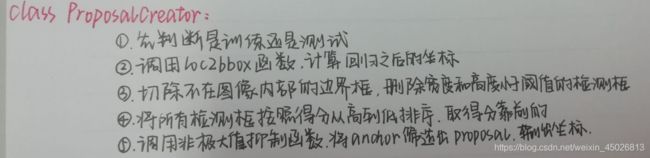 class ProposalCreator:
①.先判断是训练还是测试
②.调用loc2bbox函数.计算回归之后的坐标
③.切除不在图像内部的边界框,删除宽度和高度小于阈值的检测框
④.将所有检测框按照得分从高到低排序.取得分靠前的
⑤.调用非极大值抑制函数.将anchor筛选出proposal.输出坐标.
https://blog.csdn.net/weixin_45026813